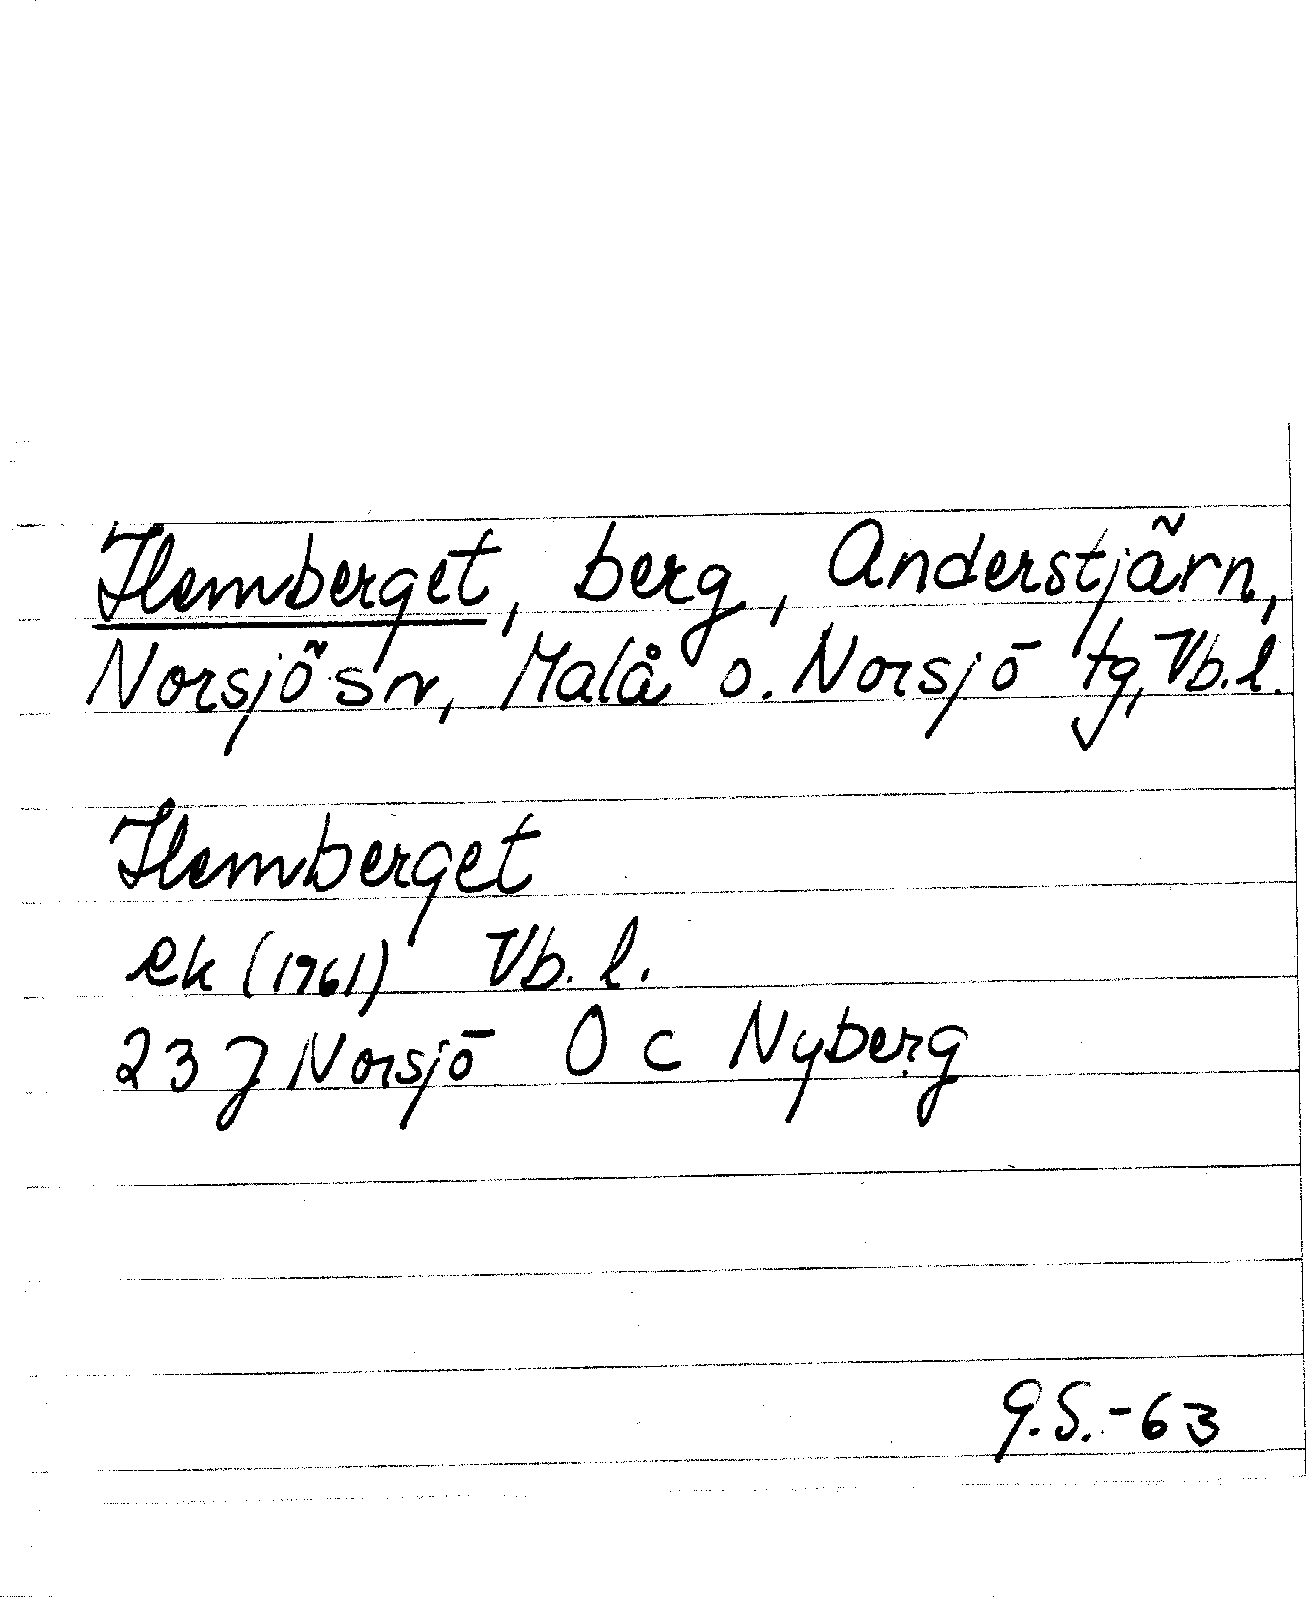 Hemberget, berg, Anderstjärn,
Norsjö sn, Malå o. Norsjö tg, Vb.l.
Hemberget
ek (1961) Vb. l.
23 J Norsjö 0 c Nyberg
G.S.-63